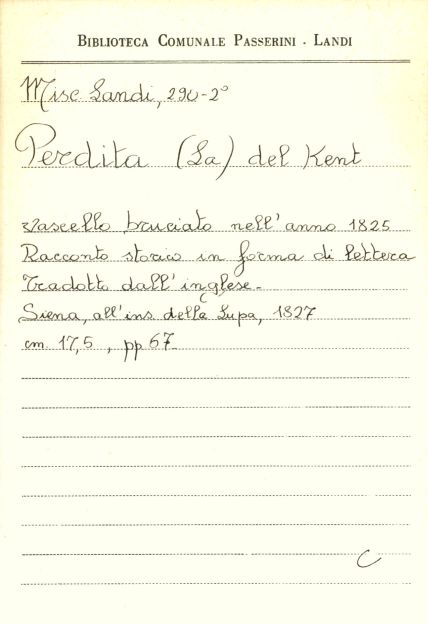 BIBLIOTECA COMUNALE PASSERINI - LANDI
Misc Landi, 290-2°
Perdita (La) del Kent
vascello bruciato nell'anno 1825
Racconto storico in forma di lettera
Tradotto dall'inglese-
Siena, all'ins della Lupa, 1827
cm 17,5, pp 67
C